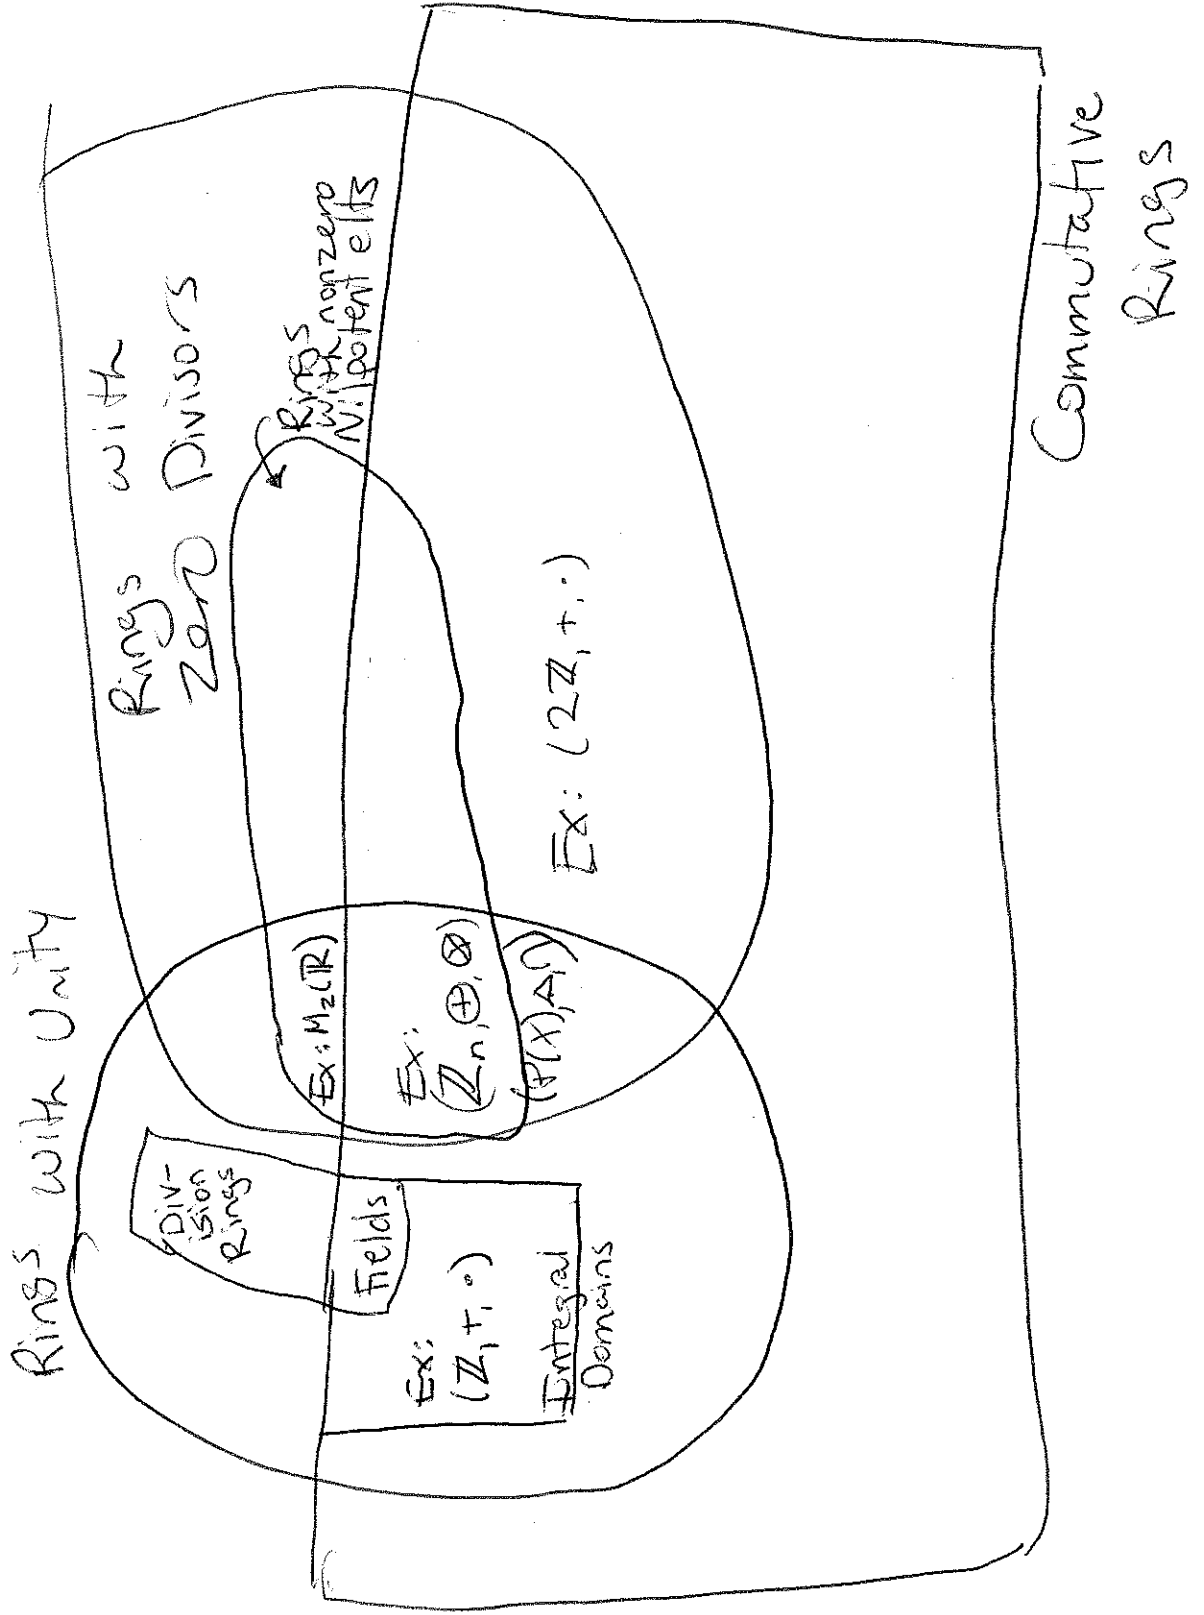 Rings with Unity
Rings with
Zero Divisors
Rings
with nonzero
Nilpotent elts
Div-
ision
Rings
Ex: M₂(ℝ)
Fields
Ex:
(ℤₙ, ⊕, ⊗)
(P(X), Δ, ∩)
Ex: (2ℤ, +, ·)
Ex:
(ℤ, +, ·)
Integral
Domains
Commutative
Rings